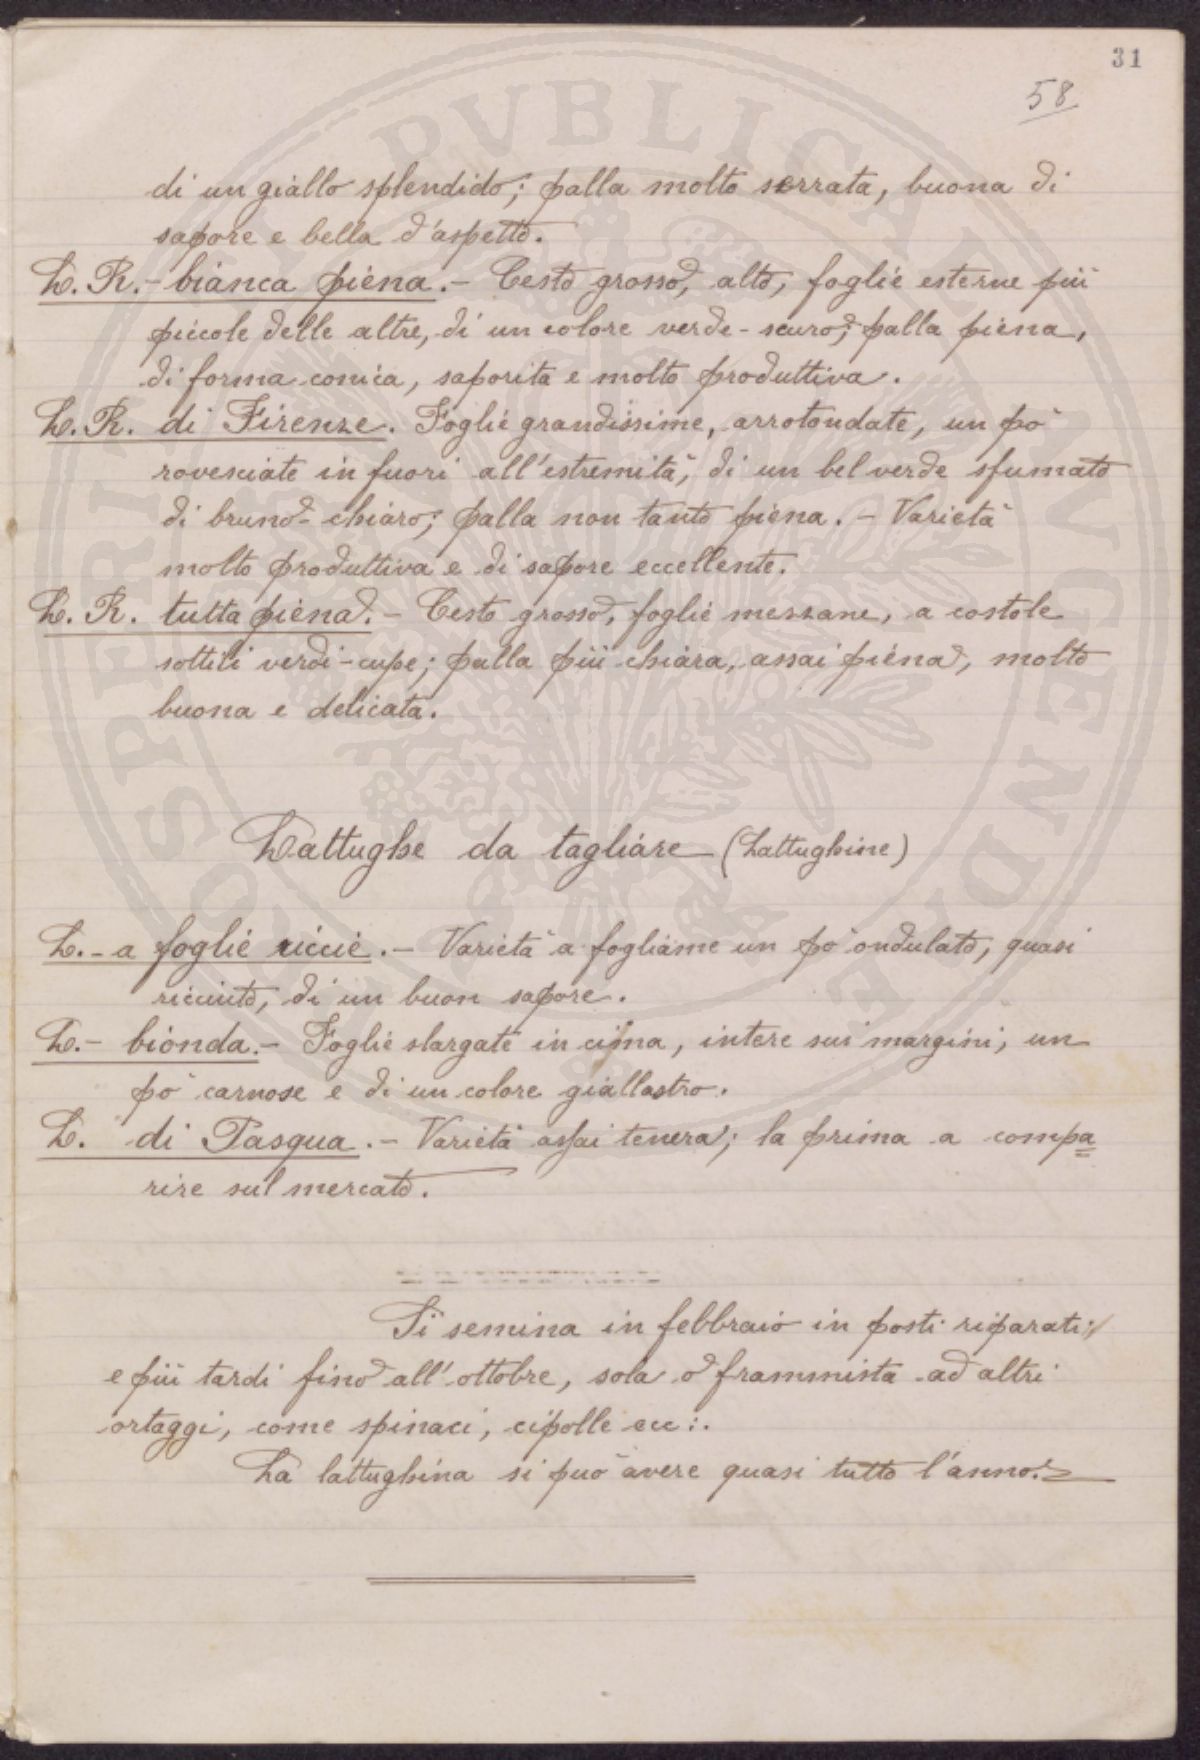 31
58
di un giallo splendido; palla molto serrata, buona di
sapore e bella d'aspetto.
L. R. - bianca piena. - Cesto grosso, alto, foglie esterne più
piccole delle altre, di un colore verde-scuro; palla piena,
di forma conica, saporita e molto produttiva.
L. R. di Firenze. Foglie grandissime, arrotondate, un pò
rovesciate in fuori all'estremità, di un bel verde sfumato
di bruno-chiaro; palla non tanto piena. - Varietà
molto produttiva e di sapore eccellente.
L. R. tutta piena. - Cesto grosso, foglie mezzane, a costole
sottili verdi-cupe; palla più chiara, assai piena, molto
buona e delicata.
Lattughe da tagliare (Lattughine)
L. - a foglie riccie. - Varietà a fogliame un pò ondulato, quasi
ricciuto, di un buon sapore.
L. - bionda. - Foglie slargate in cima, intere sui margini, un
pò carnose e di un colore giallastro.
L. di Pasqua. - Varietà assai tenera; la prima a compa=
rire sul mercato.
Si semina in febbraio in posti riparati;
e più tardi fino all'ottobre, sola o frammista ad altri
ortaggi, come spinaci, cipolle ecc:.
La lattughina si può avere quasi tutto l'anno.